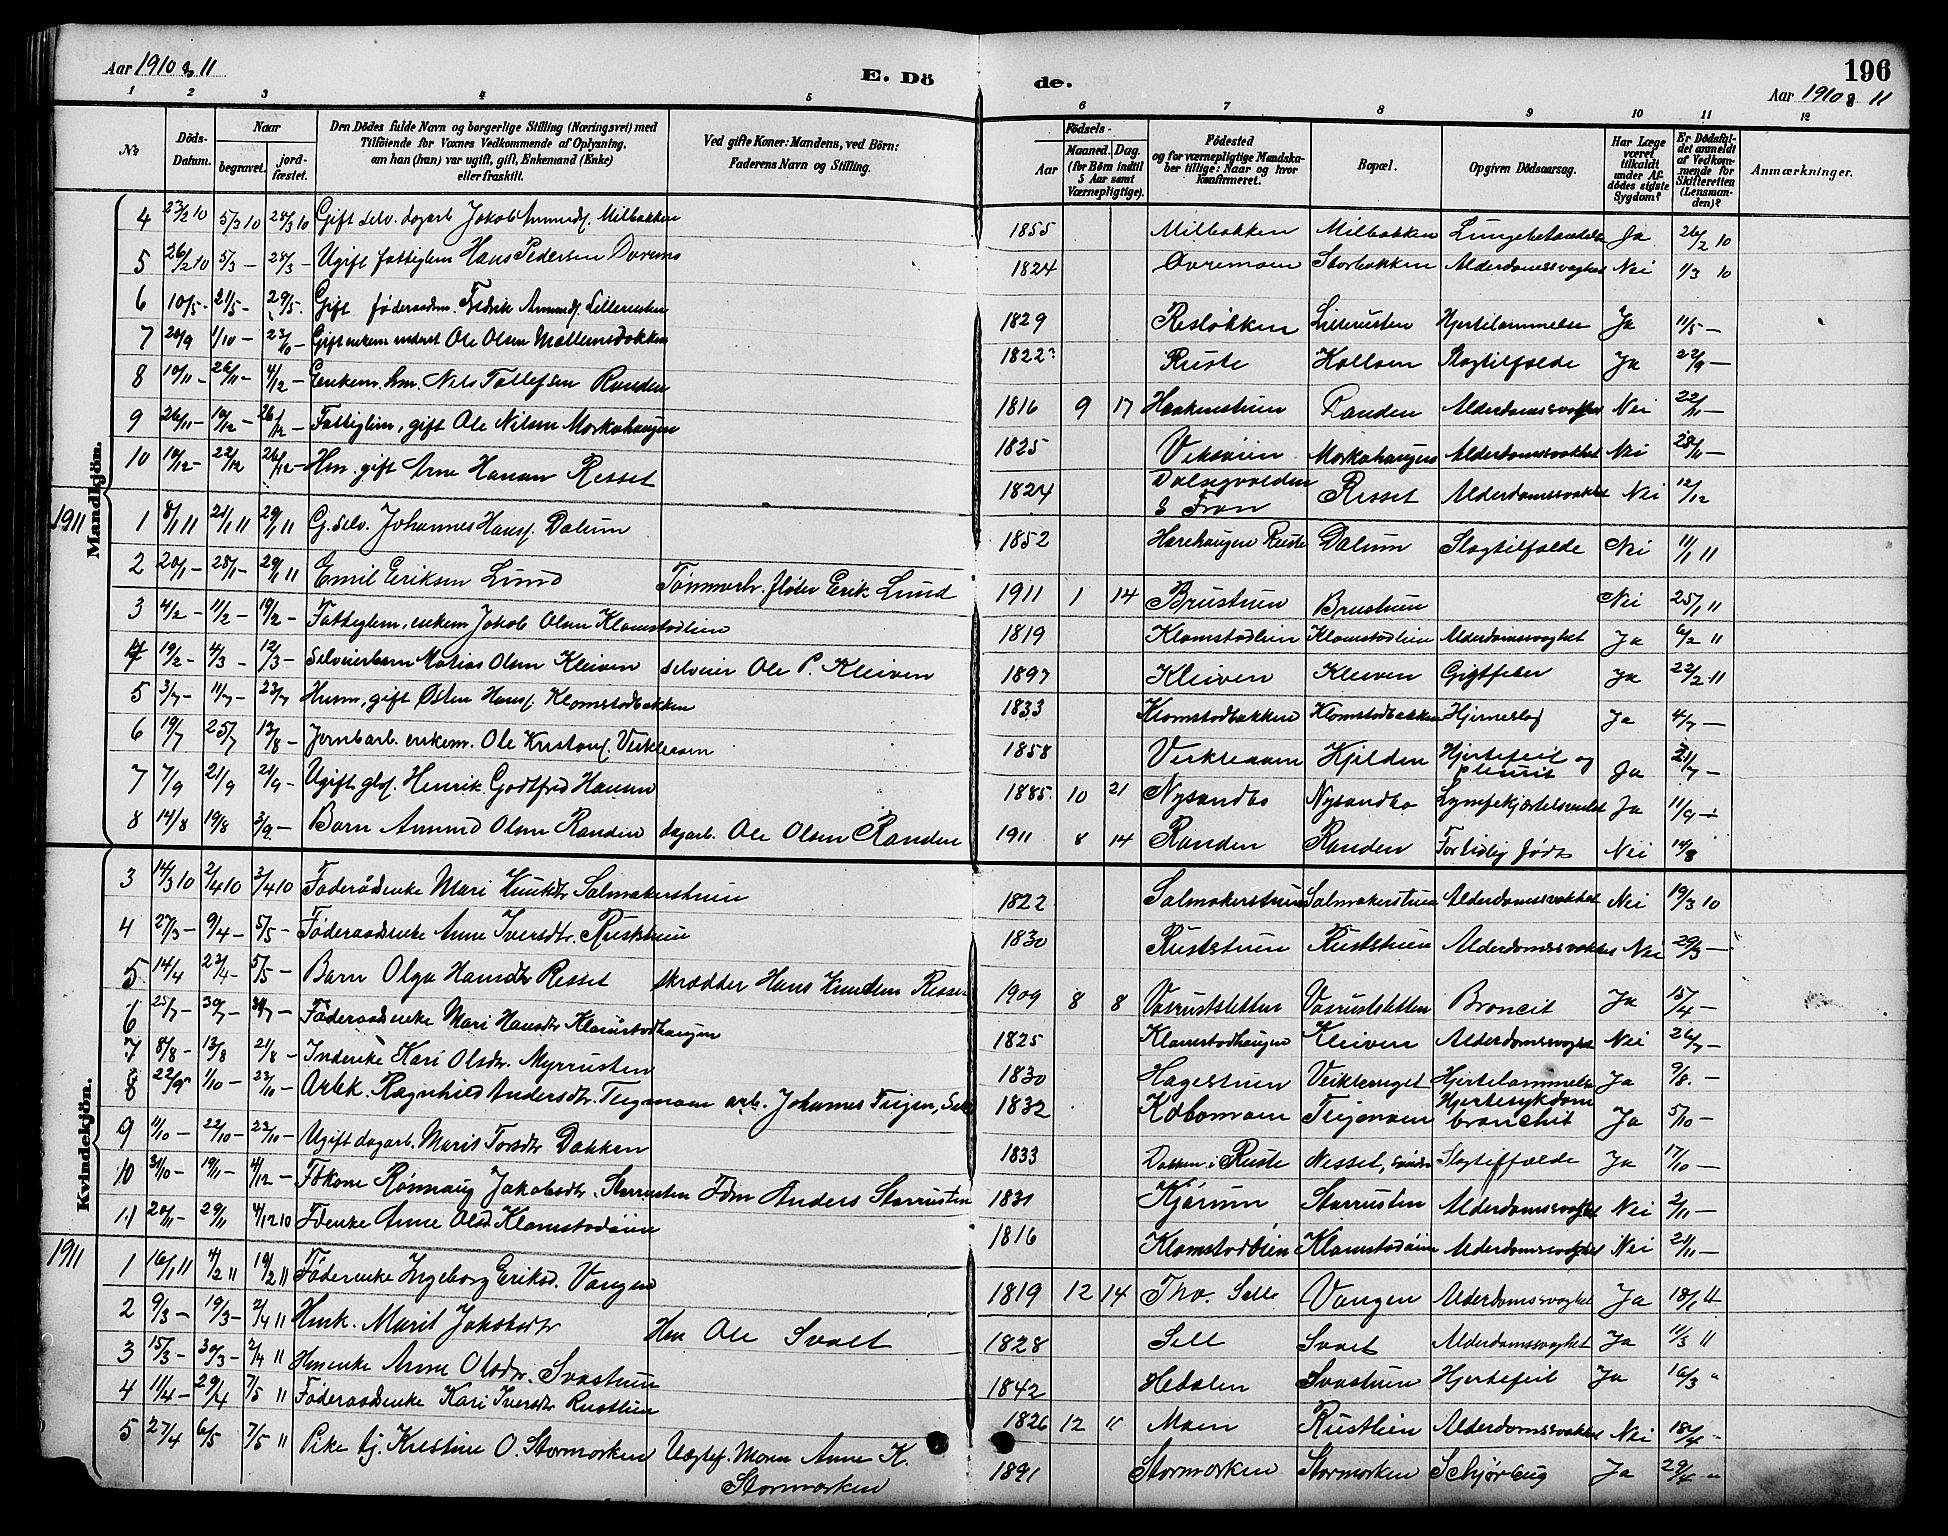 Aar 1910 & 11
E. Dö
de.
196
Aar 1910 & 11
1 2 3 4 5 6 7 8 9 10 11 12
No
Döds-Datum.
Naar
begravet.
jord-fæstet.
Den Dödes fulde Navn og borgerlige Stilling (Næringsvei) med
Tilföiende for Voxnes Vedkommende af Oplysning,
om han (hun) var ugift, gift, Enkemand (Enke)
eller fraskilt.
Ved gifte Koner: Mandens, ved Börn:
Faderens Navn og Stilling.
Födsels-
Aar
Maaned. Dag.
(for Börn indtil
5 Aar samt
Værnepligtige).
Födested
og for værnepligtige Mandska-
ber tillige: Naar og hvor
konfirmeret.
Bopæl.
Opgiven Dödsaarsag.
Har Læge
været
tilkaldt
under Af-
dödes sidste
Sygdom?
Er Dödsfal-
det anmeldt
af Vedkom-
mende for
Skifteretten
(Lensman-
den)?
Anmærkninger.
Mandkjön.
4 23/2 10 5/3 10 28/3 10 Gift selv. dagarb Jakob Amunds. Milbakken 1855 Milbakken Milbakken Lungebetændelse Ja 26/2 10
5 26/2 10 5/3 — 28/3 — Ugift fattiglem Hans Pedersen Øvremo 1824 Øvremoen Storbakken Alderdomssvaghet Nei 1/3 10
6 10/5 — 21/5 — 29/5 — Gift föderaadsm. Fredrik Amunds. Lillerusten 1829 Resløkken Lillerusten Hjertelammelse Ja 11/5 —
7 20/9 1/10 — 23/10 — Gift enkem Ole Olsen 1822 Ruste Holloen Slagtilfælde Ja 22/9 —
8 10/11 — 26/11 — 4/12 — Enkem. hm. Nils Tollefsen Randen 1816 9 17 Haakenstuen Randen Alderdomssvaghet Nei 22/11 —
9 26/11 — 10/12 — 26/12 — Fattiglem, gift Ole Nilsen Morkahaugen 1825 Morkahaugen Alderdomssvakhet Nei 28/11 —
10 10/12 — 22/12 26/12 — Hm. gift Arne Hansen Resset 1824 S Fron Resset Alderdomssvakhet Nei 12/12
1911
1 8/1 11 21/1 11 29/1 11 G. selv. Johannes Hans. Dalum 1852 Harehaugen Ruste Dalum Slagtilfælde Nei 11/1 11
2 20/1 — 28/1 — 29/1 11 Emil Eriksen Lund Tömmerh. fløter Erik Lund 1911 1 14 Brustuen Brustuen Nei 25/1 11
3 4/2 — 11/2 — 19/2 — Fattiglem, enkem Jakob Olsen Klomstadlien 1819 Klomstadlien Klomstadlien Alderdomssvaghet Ja 6/2 11
4 19/2 — 4/3 — 12/3 — Selveierbarn Matias Olsen Kleiven selveier Ole P. Kleiven 1897 Kleiven Kleiven Gigtfeber Ja 22/2 11
5 3/7 — 11/7 — 23/7 Husm, gift Østen Hans. Klomstadbakken 1833 Klomstadbakken Klomstadbakken Hjerneslag Ja 4/7 —
6 19/7 25/7 13/8 — Jernbarb. enkem. Ole Kristoff. Veikleaaen 1858 Veikleaaen Kjelden Hjertefeil og pleurit Ja 21/7 —
7 7/9 21/9 24/9 — Ugift Henrik Godtfred Hansen 1885 10 21 Nysandbo Nysandbo Ja 11/9 —
8 14/8 19/8 3/9 — Barn Amund Olsen Randen dagarb. Ole Olsen Randen 1911 8 14 Randen Randen For tidlig født Nei 14/8
Kvindekjön.
3 14/3 10 2/4 10 3/4 10 Føderaadsenke Mari Knutsdtr Salmakerstuen 1822 Salmakerstuen Salmakerstuen Alderdomssvakhet Nei 19/3 10
4 27/3 — 9/4 — 5/5 — Føderaadsenke Anne Iversdtr. Ruststuen 1830 Ruststuen Ruststuen Alderdomssvakhet Nei 29/3 —
5 14/4 23/4 — 5/5 — Barn Olga Hansdtr Resset skrædder Hans Knudsen Resset 1909 8 8 Vasrustsletten Vasrustsletten Broncit Ja 15/4 —
6 25/7 — 30/7 — 31/7 — Føderaadsenke Mari Hansdtr Klomstadhaugen 1825 Klomstadhaugen Kleiven Alderdomssvaghet Nei 26/7 —
7 8/8 — 13/8 21/8 — Inderske Kari Olsdtr. Myrrusten 1830 Hagestuen Hjertelammelse Ja 9/8 —
8 22/9 1/10 — 23/10 — Arbk. Ragnhild Andersdtr. Teigmoen arb. Johannes Teigen, Sel 1832 Kobomoen Teigmoen Hjertesykdom bronchit Ja 5/10 —
9 11/10 — 22/10 — 23/10 — Ugift dagarb. Marit Torsdtr Dakken 1833 Dakken i Ruste Nesset, Slagtilfælde Ja 17/10 —
10 31/10 — 19/11 — 4/12 — Fdkone Rønnaug Jakobsdtr. Storrusten Fdm Anders Storrusten 1831 Kjørum Storrusten Alderdomssvaghet Nei 2/11 —
11 20/11 — 29/11 4/12 10 Fdenke Anne Olsd Klomstadøien 1816 Klomstadøien Klomstadøien Alderdomssvaghet Nei 21/11 —
1911
1 16/1 11 4/2 11 19/2 11 Føderenke Ingeborg Eriksd. Vangen 1819 12 14 Thv. Selle Vangen Alderdomssvaghet Ja 18/1 11
2 9/3 — 19/3 — 2/4 11 Hmk. Marit Jakobsdtr Hm Ole Svaet 1828 Sell Svaet Alderdomssvaghet Ja 11/3 11
3 15/3 — 30/3 — 2/4 11 Hmenke Anne Olsdtr. Svastuen 1842 Hedalen Svastuen Hjertefeil Ja 16/3 "
4 11/4 — 29/4 7/5 11 Føderaadsenke Kari Iversdtr Rustlien 1826 12 11 Moen Rustlien Alderdomssvakhet Nei 18/4 —
5 27/4 6/5 7/5 11 Pike tj. Kristine O. Stormorken Ugtef. Moren Anne K. Stormorken 1891 Stormorken Stormorken Ja 29/4 "